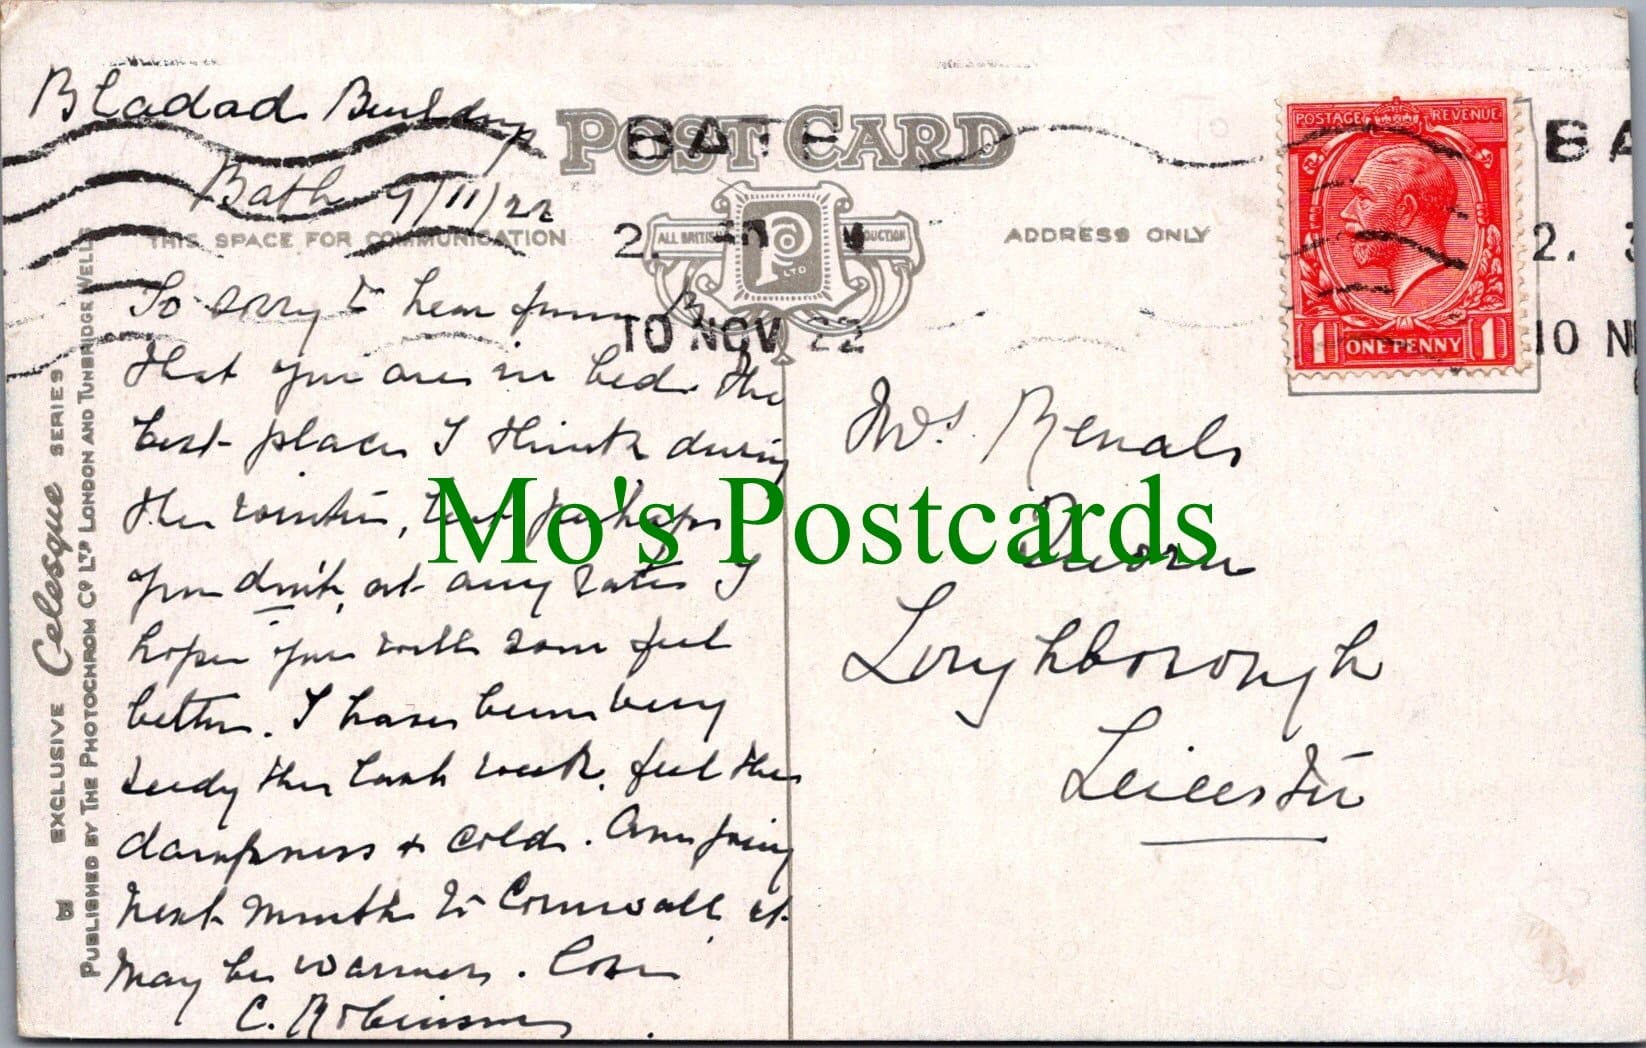 Bladad Buildings
Bath 9/11/22
POST CARD
BATH
2. 30 PM
10 NOV 22
THIS SPACE FOR COMMUNICATION
ALL BRITISH PRODUCTION
P LTD
ADDRESS ONLY
POSTAGE REVENUE
1 ONE PENNY 1
BA
2. 3
10 N
So sorry to hear from
that you are in bed. the
best place I think during
the winter, but perhaps
you don't, at any rate I
hope you will soon feel
better. I have been very
seedy the last week, feel the
dampness & cold. Am going
next month to Cornwall, it
may be warmer. Love
C. Robinson
Mrs. Renals
Quorn
Loughborough
Leicester
EXCLUSIVE Celesque SERIES
PUBLISHED BY THE PHOTOCHROM CO LTD LONDON AND TUNBRIDGE WELLS
Mo's Postcards